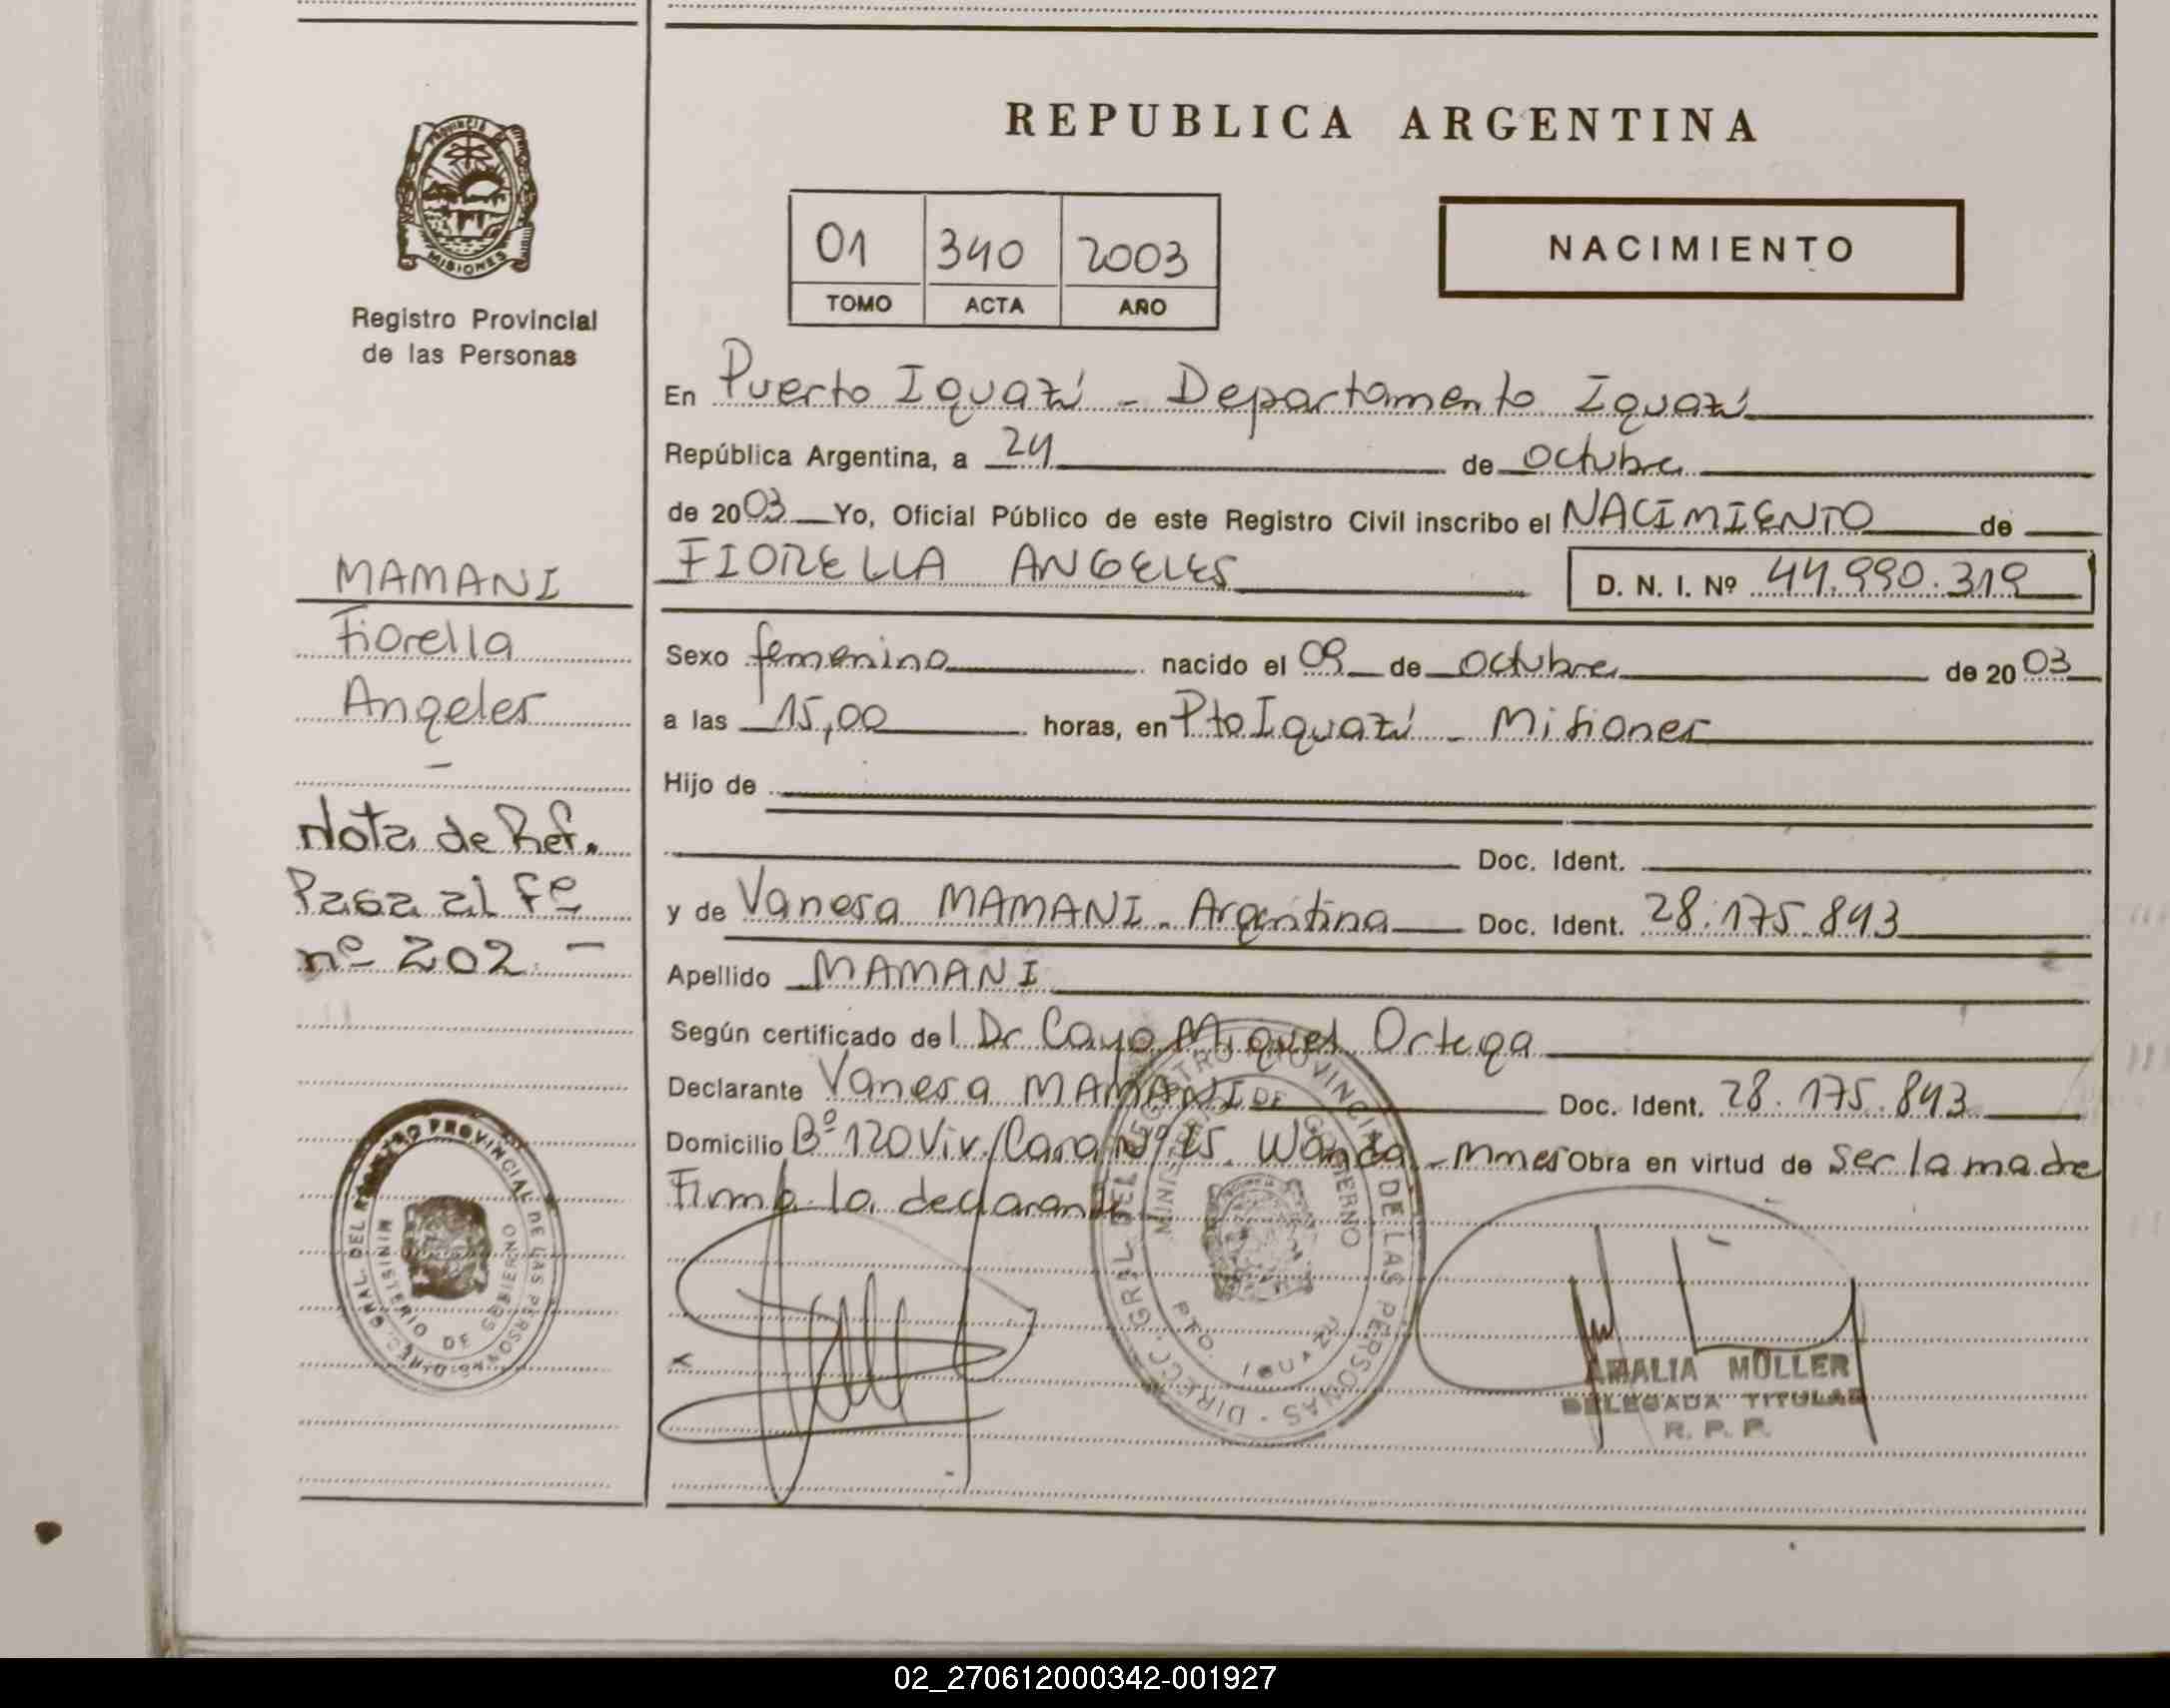 REPUBLICA ARGENTINA
PROVINCIA DE
MISIONES
Registro Provincial
de las Personas
01 340 2003
TOMO ACTA AÑO
NACIMIENTO
En Puerto Iguazú - Departamento Iguazú
República Argentina, a 24 de octubre
de 2003 Yo, Oficial Público de este Registro Civil inscribo el NACIMIENTO de
FIORELLA ANGELES D. N. I. Nº 44.990.319
Sexo femenino nacido el 09 de octubre de 2003
a las 15,00 horas, en Pto Iguazú - Misiones
Hijo de
Doc. Ident.
y de Vanesa MAMANI - Argentina Doc. Ident. 28.175.843
Apellido MAMANI
Según certificado del Dr Cayo Miguel Ortega
Declarante Vanesa MAMANI Doc. Ident. 28.175.843
Domicilio Bº 120 Viv./Casa Nº 25 Wanda - Mnes Obra en virtud de ser la madre
Firma la declarante
MAMANI
Fiorella
Angeles
-
Nota de Ref.
Pasa al Fº
nº 202 -
DIRECC. GRAL. DEL REGISTRO PROVINCIAL DE LAS PERSONAS
MINISTERIO DE GOBIERNO
DIRECC. GRAL. DEL REGISTRO PROVINCIAL DE LAS PERSONAS
MINISTERIO DE GOBIERNO
PTO. IGUAZU
AMALIA MÜLLER
DELEGADA TITULAR
R. P. P.
02_270612000342-001927